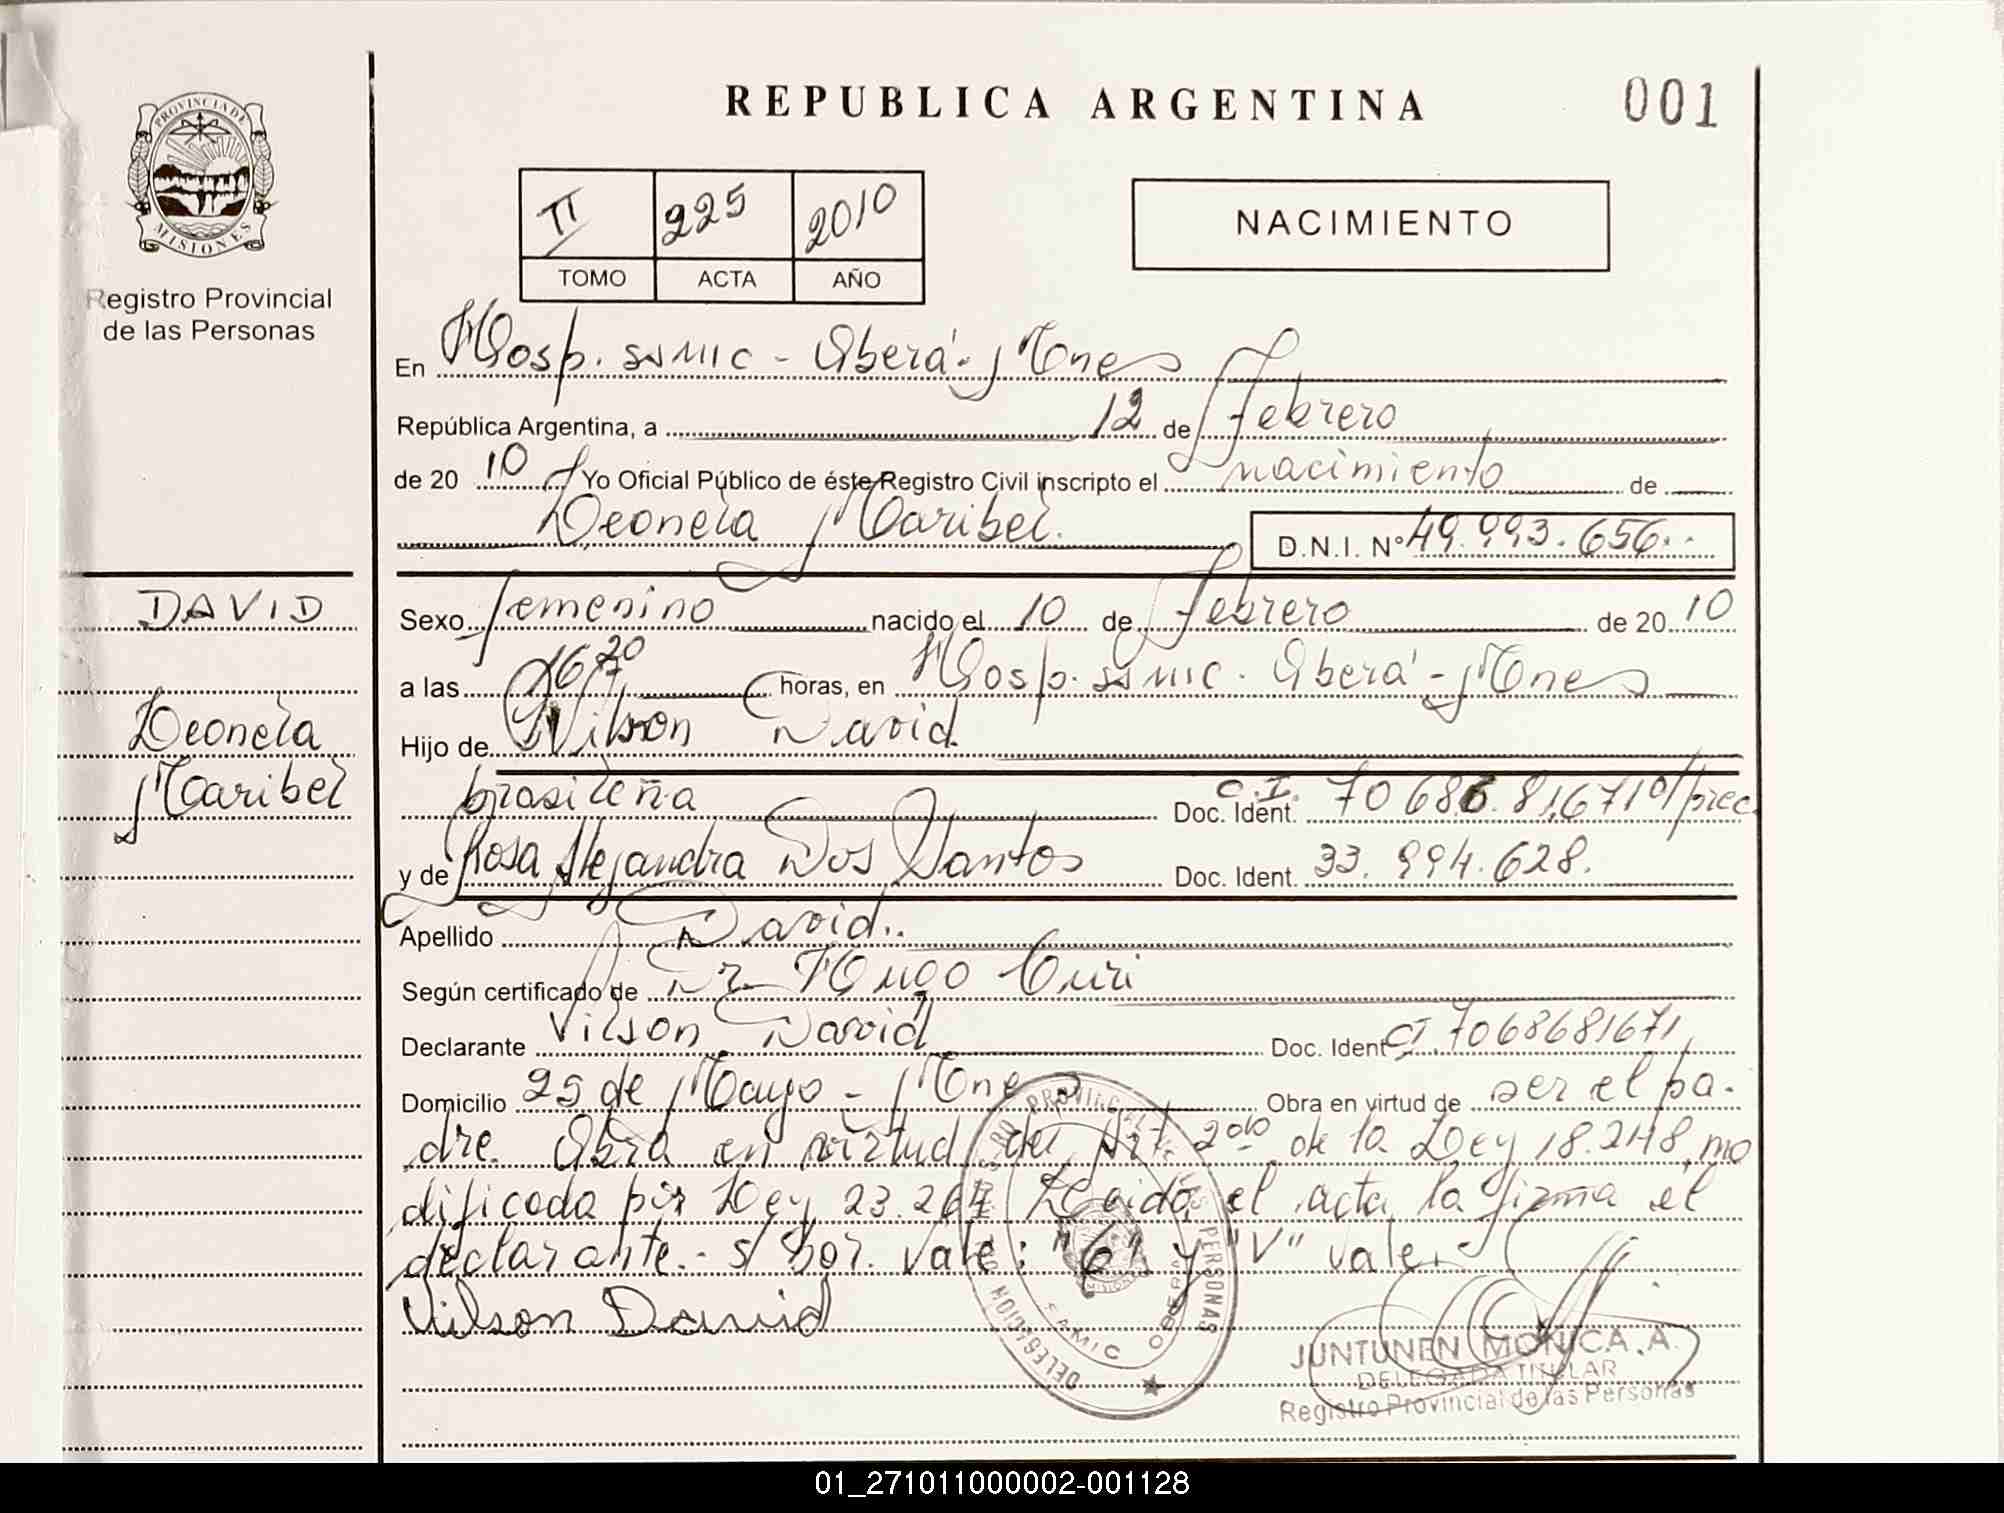 REPUBLICA ARGENTINA
001
PROVINCIA DE
MISIONES
Registro Provincial
de las Personas
II 225 2010
TOMO ACTA AÑO
NACIMIENTO
En Hosp. SAMIC - Oberá - Mnes
República Argentina, a 12 de Febrero
de 20 10 Yo Oficial Público de éste Registro Civil inscripto el nacimiento de
Leonela Maribel.
D.N.I. Nº 49.993.656..
DAVID
Leonela
Maribel
Sexo femenino nacido el 10 de Febrero de 20 10
a las 16,20 horas, en Hosp. SAMIC. Oberá - Mnes
Hijo de Vilson David
brasileña Doc. Ident. C.I. 7068681671
y de Rosa Alejandra Dos Santos Doc. Ident. 33.994.628.
Apellido David..
Según certificado de Dr. Hugo Curi
Declarante Vilson David Doc. Ident CI. 7068681671
Domicilio 25 de Mayo - Mnes Obra en virtud de ser el pa-
dre. Obra en virtud del Art. 2do de la Ley 18.248, mo
dificada por Ley 23.264 Leida el acta la firma el
declarante.- s/ bor. vale: "6" y "V" vale.-
Vilson David
PROVINCIAL DE LAS PERSONAS
DELEGACION
SAMIC OBERA
JUNTUNEN MONICA. A.
DELEGADA TITULAR
Registro Provincial de las Personas
01_271011000002-001128